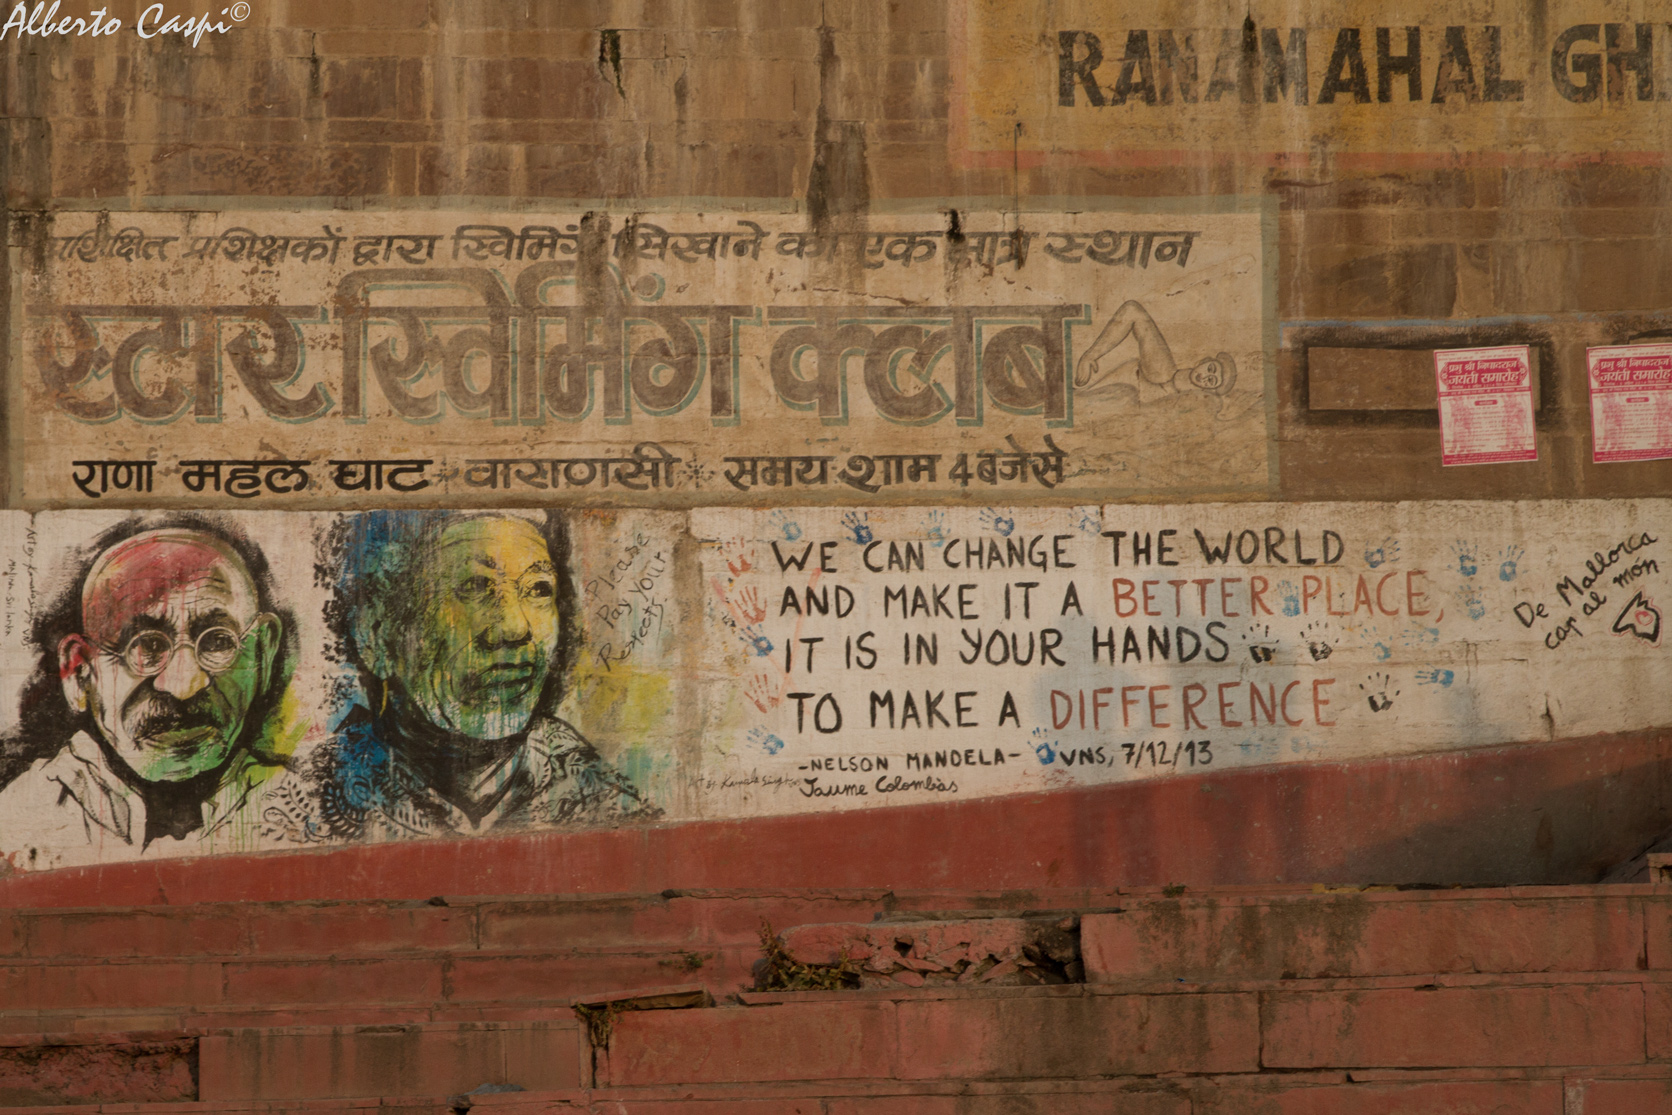 Alberto Caspi©
RANAMAHAL GH
प्रशिक्षित प्रशिक्षकों द्वारा स्विमिंग सिखाने का एक मात्र स्थान
स्टार स्विमिंग क्लब
राणा महल घाट वाराणसी समय शाम 4 बजे से
प्रभु श्री निषादराज
जयंती समारोह
प्रभु श्री निषादराज
जयंती समारोह
Please
Pay Your
Respects
WE CAN CHANGE THE WORLD
AND MAKE IT A BETTER PLACE,
IT IS IN YOUR HANDS
TO MAKE A DIFFERENCE
-NELSON MANDELA- VNS, 7/12/13
Jaume Colombàs
De Mallorca
cap al món